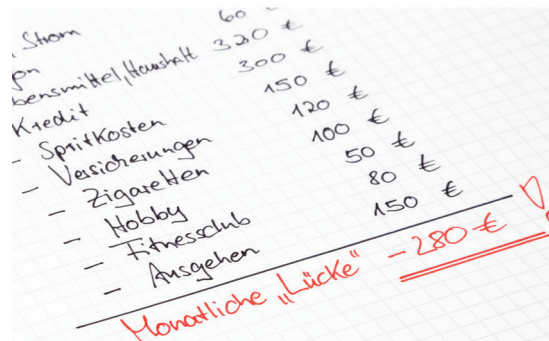 Strom
60
bensmittel/Haushalt 320 €
Kredit 300 €
- Spritkosten 150 €
- Versicherungen 120 €
- Zigaretten 100 €
- Hobby 50 €
- Fitnessclub 80 €
- Ausgehen 150 €
Monatliche „Lücke“ -280 € !